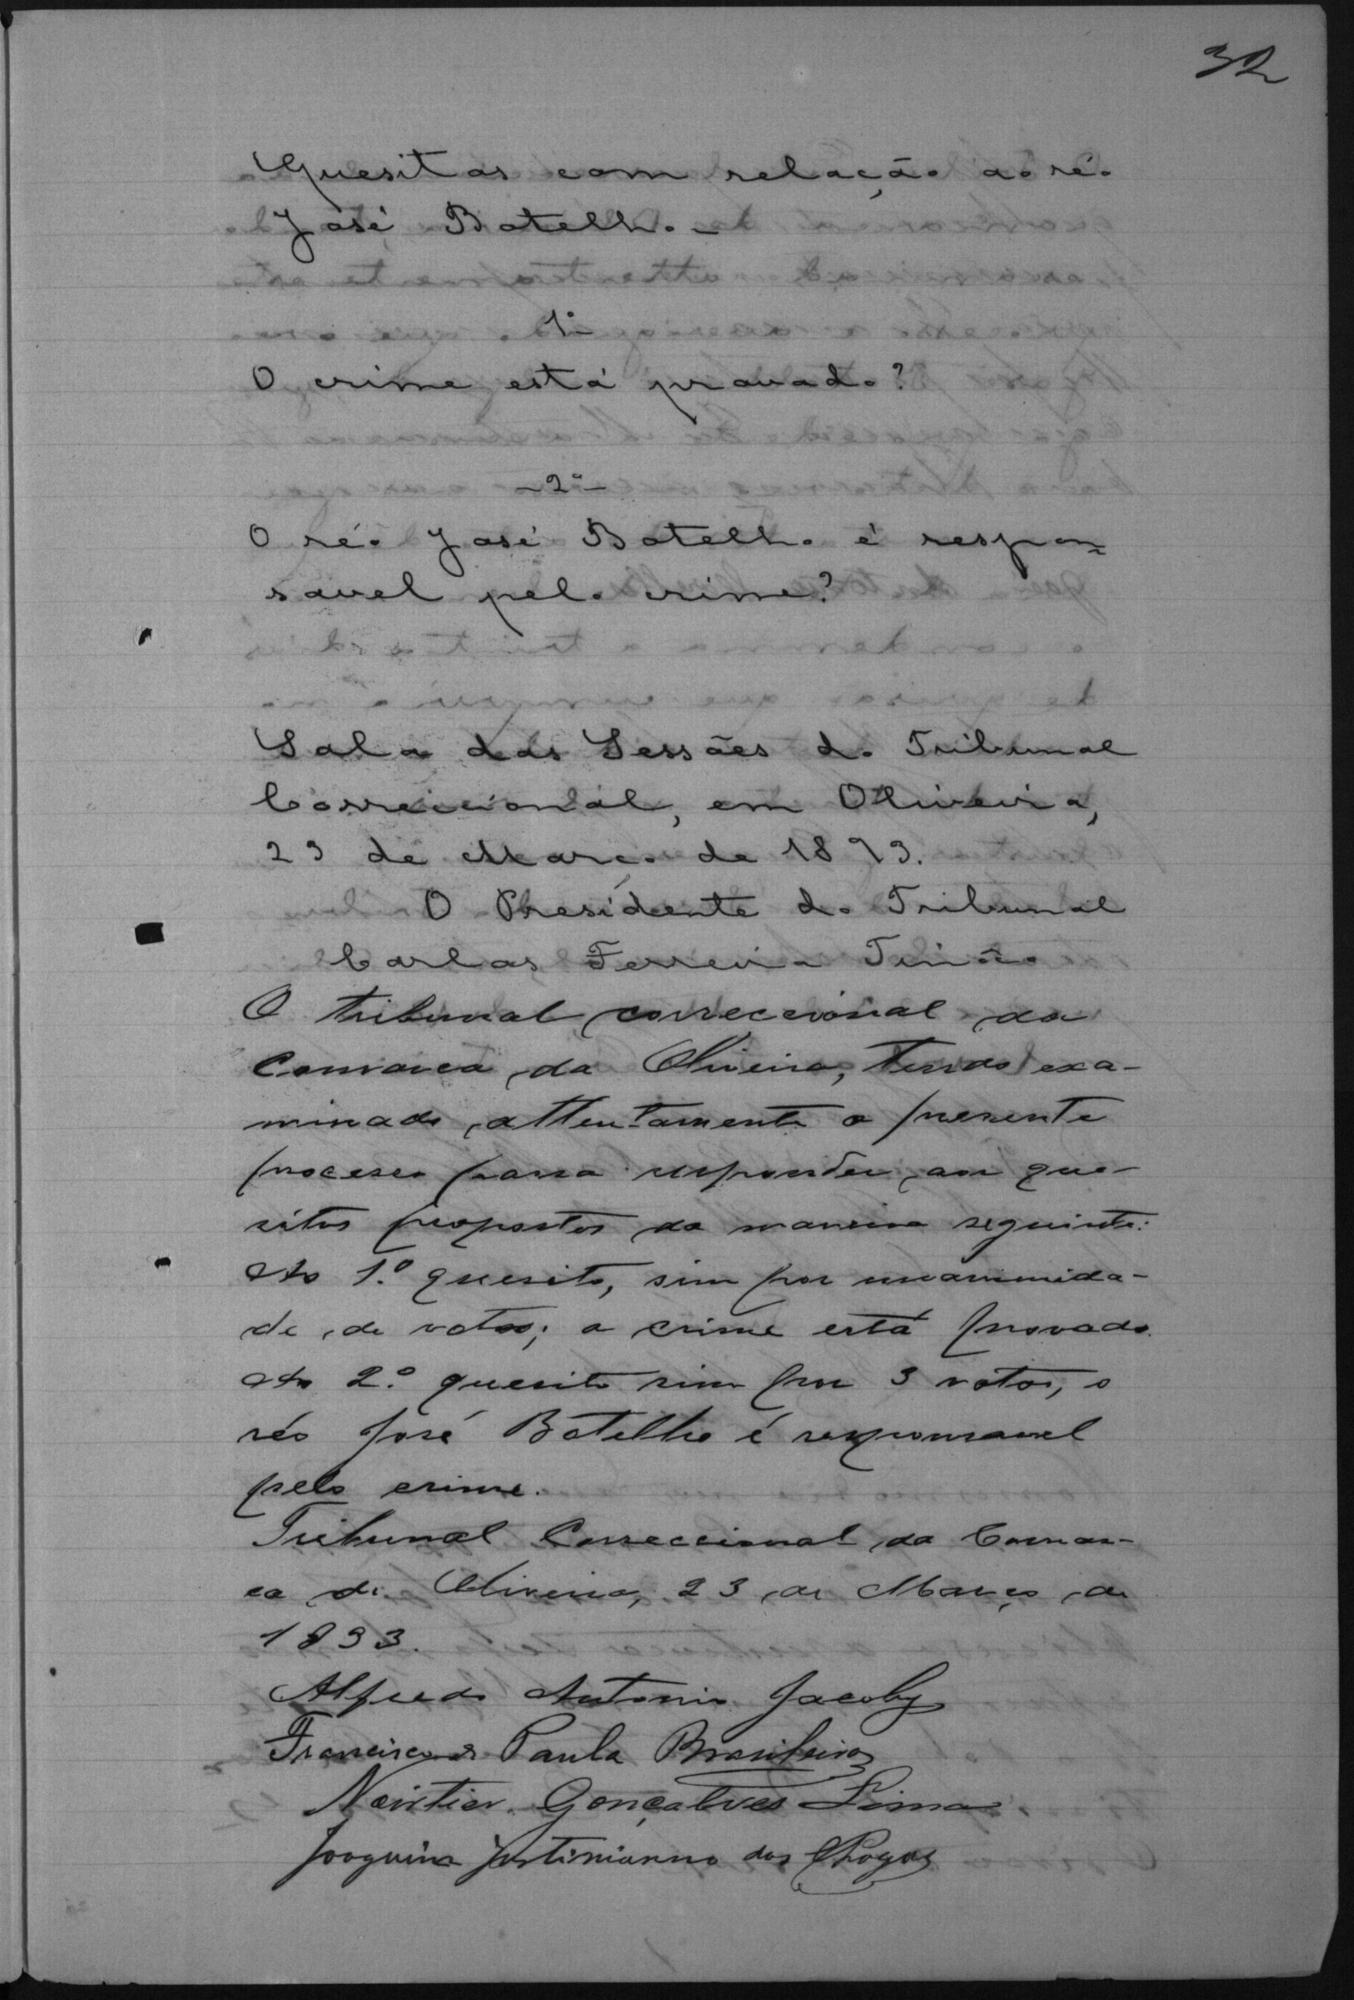 32
Quesitos com relação ao réo
José Botelho. —
1º
O crime está provado?
— 2º —
O réo José Botelho é respon-
savel pelo crime?
Sala das Sessões do Tribunal
Correccional, em Oliveira,
23 de Março de 1893.
O Presidente do Tribunal
Carlos Ferreira Tinôco
O tribunal correccional da
Comarca da Oliveira, tendo exa-
minado attentamente o presente
processo passa responder aos que-
sitos propostos da maneira seguinte:
Ao 1.º quesito, sim por unanimida-
de de votos; o crime está provado.
Ao 2.º quesito sim por 3 votos, o
réo José Botelho é responsavel
pelo crime.
Tribunal Correccional da Comar-
ca de Oliveira, 23 de Março de
1893.
Alfredo Antonio Jacoby
Francisco de Paula Brasileiro
Gonçalves Lima
Joaquim Justinianno das Chagas